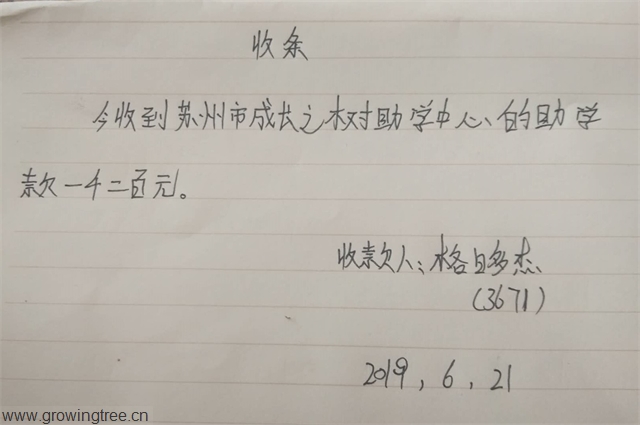 收条
今收到苏州市成长之树助学中心的助学
款一千二百元。
收款人：格日多杰
(3671)
2019，6，21
www.growingtree.cn